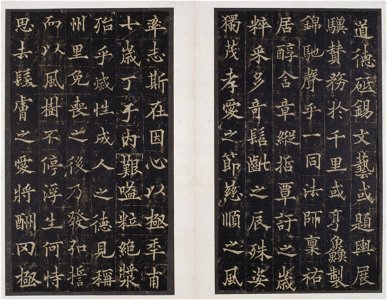 道德砥錫文藝或題輿展
驥賛務於千里或亨鱻製
錦馳聲乎一同法師稟祐
居醇含章縱哲覃訏之歲
粹采多奇髫齔之辰殊姿
獨茂孝愛之節慈順之風
率志斯在因心以極年甫
七歲丁于內艱嗌粒絕漿
殆乎滅性成人之德見稱
州里免喪之後乃發弘誓
而以風樹不停浮生何恃
思去髮膚之愛將酬罔極